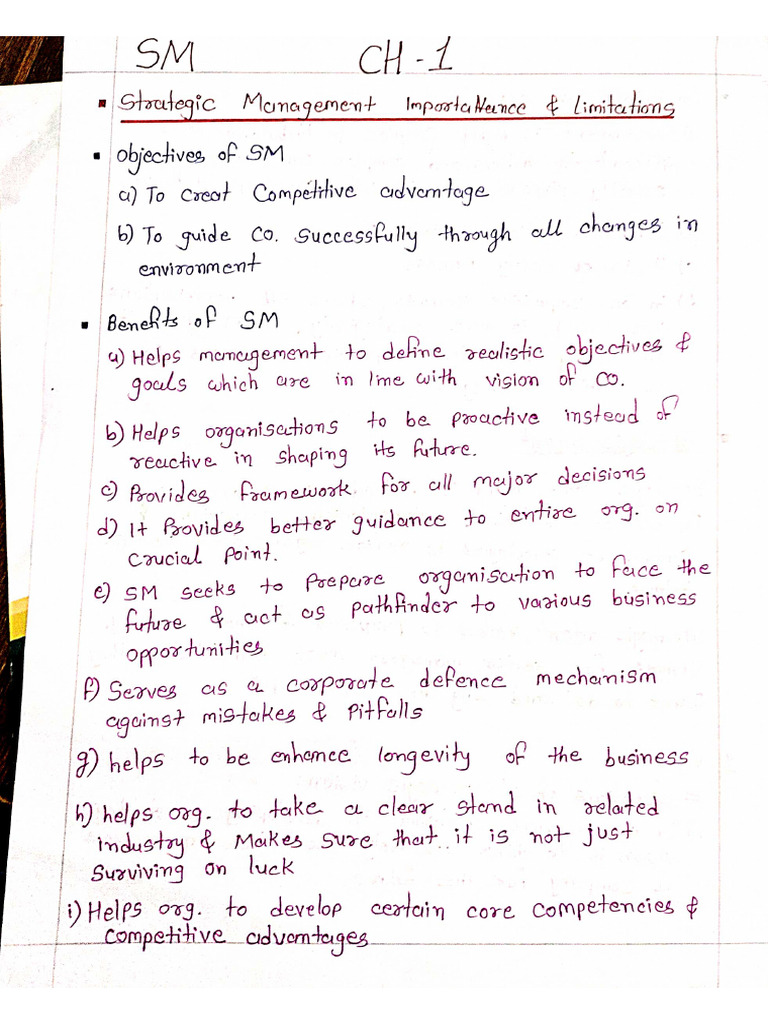 SM CH-1
▪ Strategic Management Importance & Limitations
▪ Objectives of SM
a) To Creat Competitive advantage
b) To guide Co. Successfully through all changes in
environment
▪ Benefits of SM
a) Helps management to define realistic objectives &
goals which are in line with vision of Co.
b) Helps organisations to be proactive instead of
reactive in shaping its future.
c) Provides framework for all major decisions
d) It Provides better guidance to entire org. on
Crucial Point.
e) SM seeks to Prepare organisation to face the
future & act as Pathfinder to various business
opportunities
f) Serves as a corporate defence mechanism
against mistakes & Pitfalls
g) helps to be enhance longevity of the business
h) helps org. to take a clear stand in related
industry & Makes sure that it is not just
Surviving on luck
i) Helps org. to develop certain core competencies &
competitive advantages